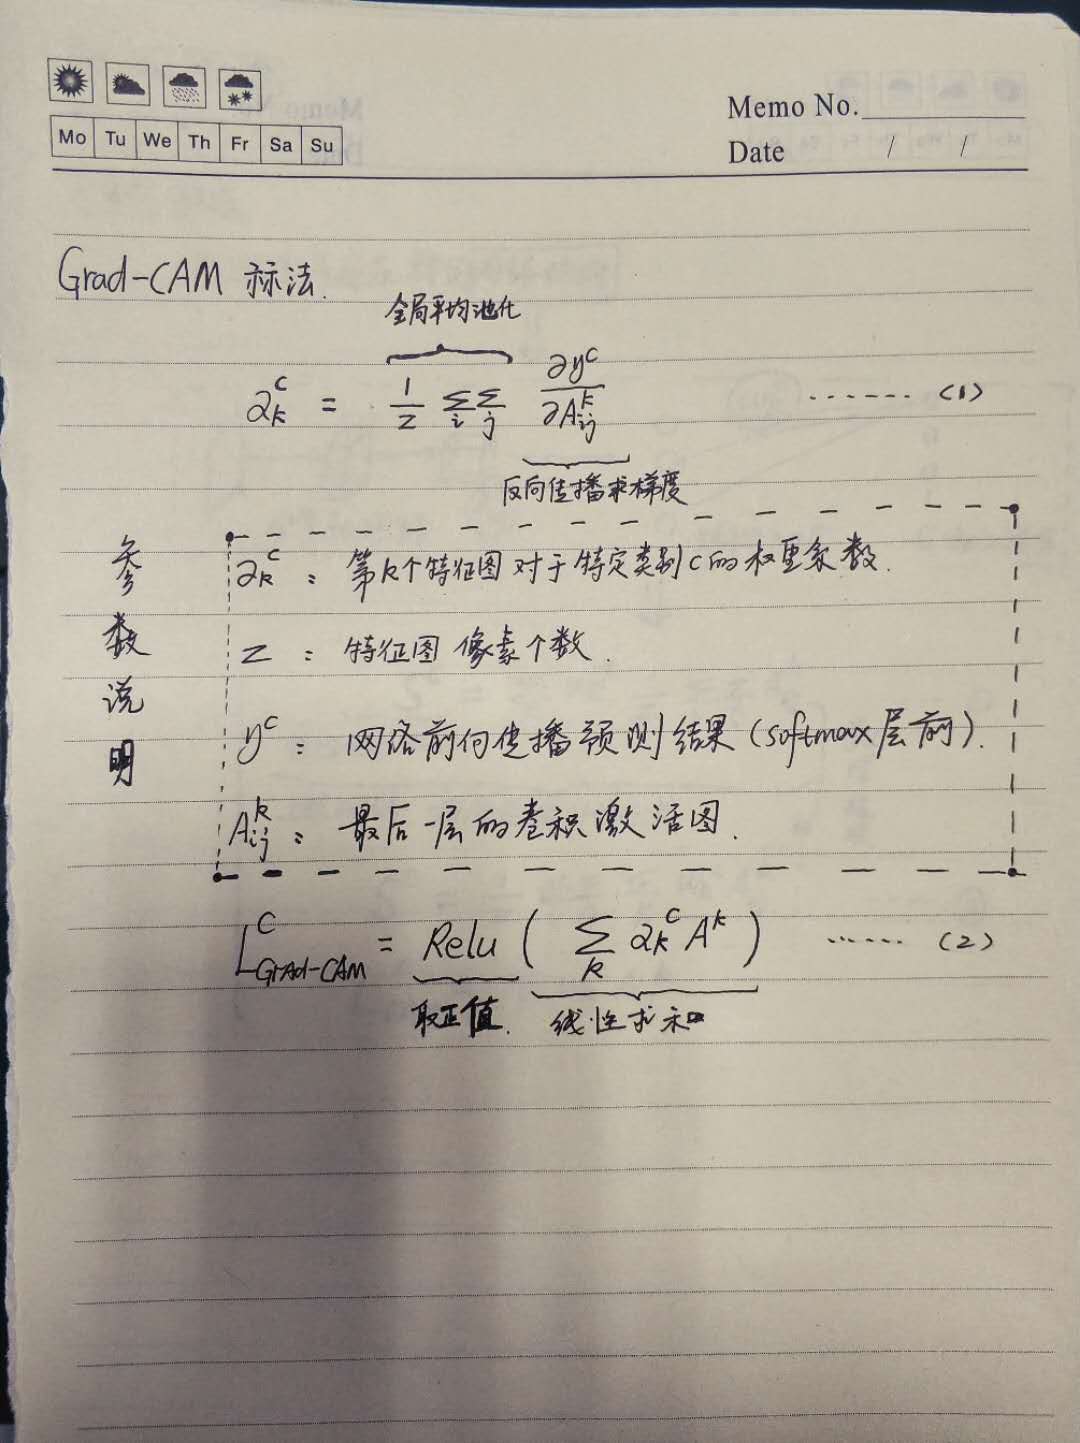 Memo No.
Mo Tu We Th Fr Sa Su
Date / /
Grad-CAM 算法.
全局平均池化
α_k^c = 1/Z Σ_i Σ_j ∂y^c/∂A_ij^k ······ (1)
反向传播求梯度
参数说明
α_k^c : 第k个特征图对于特定类别c的权重系数.
Z : 特征图像素个数.
y^c : 网络前向传播预测结果(softmax层前).
A_ij^k : 最后一层的卷积激活图.
L_Grad-CAM^c = Relu ( Σ_k α_k^c A^k ) ······ (2)
取正值. 线性求和